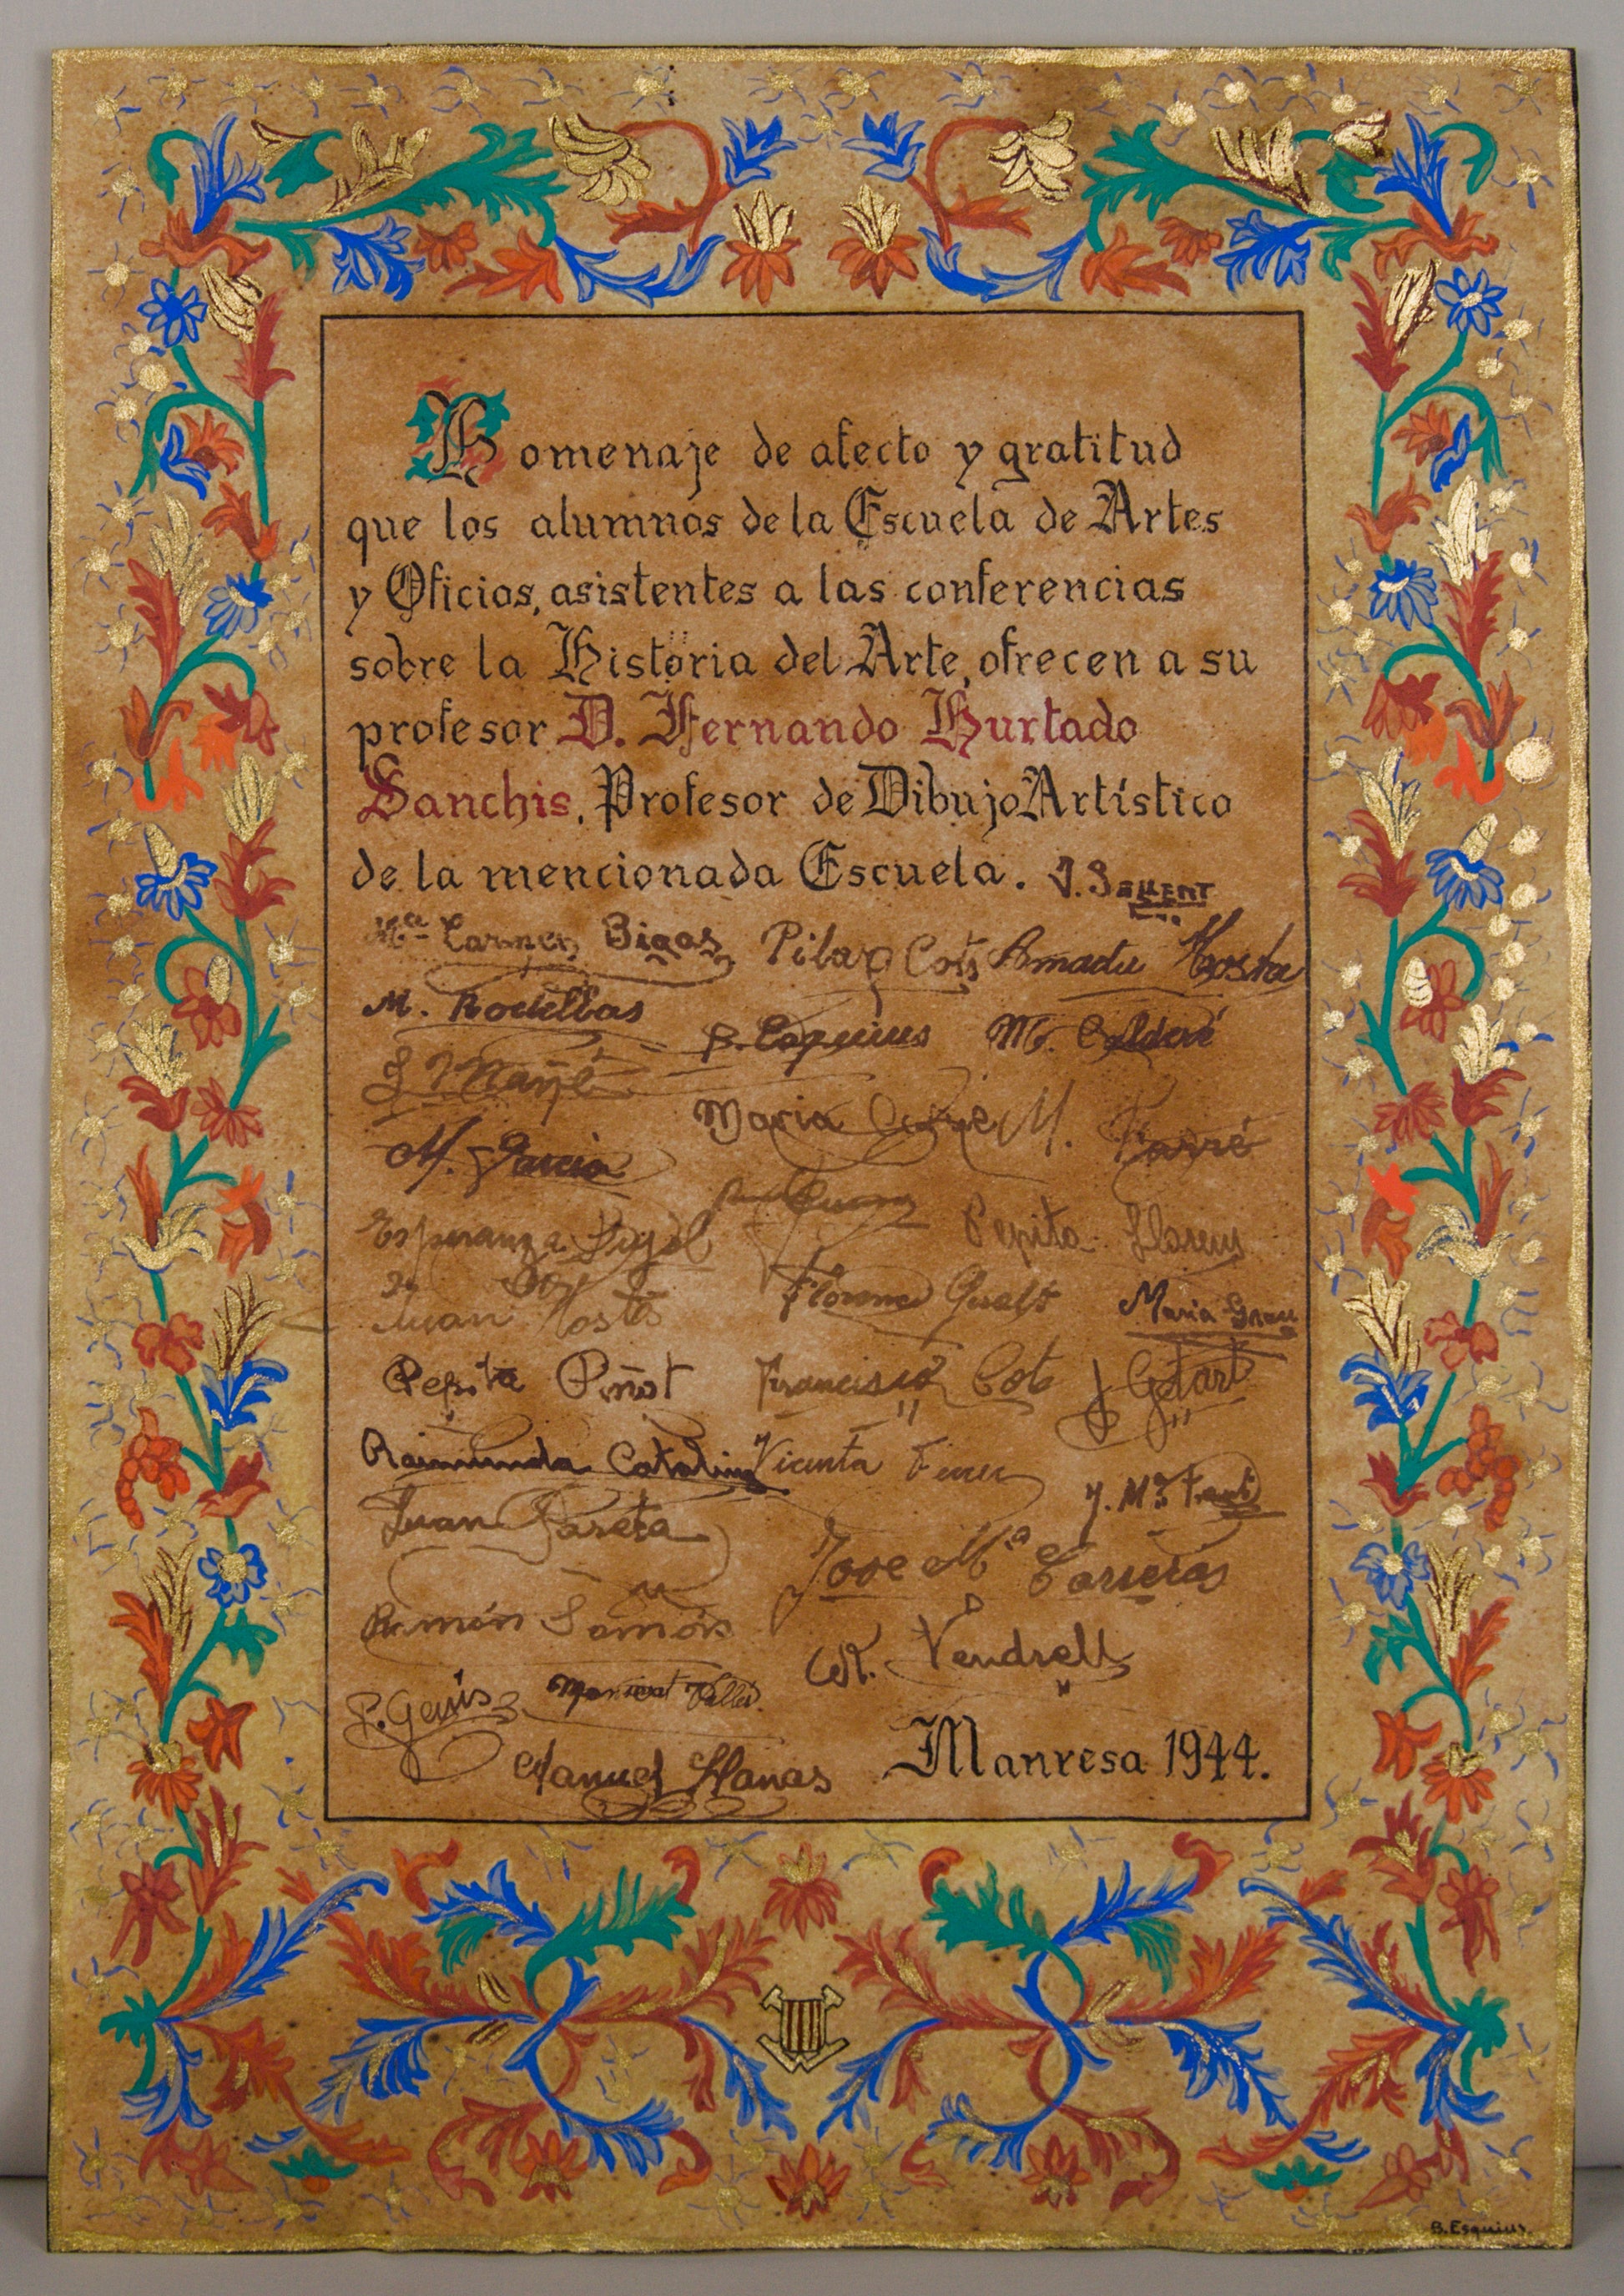 Homenaje de afecto y gratitud
que los alumnos de la Escuela de Artes
y Oficios, asistentes a las conferencias
sobre la História del Arte, ofrecen a su
profesor D. Fernando Hurtado
Sanchis, Profesor de Dibujo Artístico
de la mencionada Escuela.
Mª Carmen Bigas Pilar Cots Amadeu Costa
M. Rodellas B. Esquius M.
J. Mañé
Maria M. Farré
M. Garcia
Esperanza Pujol Pepita Llorens
Juan Florencio Maria Grau
Pepita Piñot Francisco Cots J.
Raimunda Catalina Vicenta Ferrer
Juan J. Mª Font
Jose Mª Carreras
Ramón
Vendrell
Montserrat
Manuel Llanas Manresa 1944.
B. Esquius